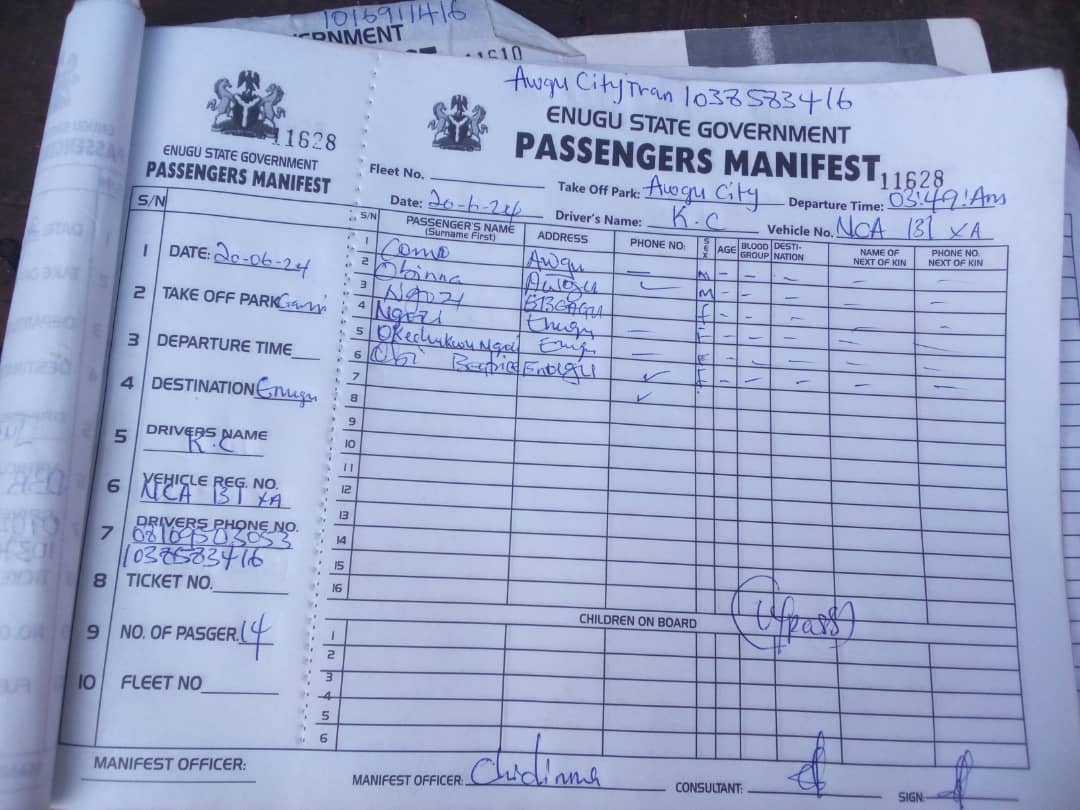 1016911416
RNMENT
11610
11628
ENUGU STATE GOVERNMENT
PASSENGERS MANIFEST
S/N
1 DATE: 20-06-24
2 TAKE OFF PARK
3 DEPARTURE TIME
4 DESTINATION Enugu
5 DRIVERS NAME
K.C
6 VEHICLE REG. NO.
NCA 131 XA
7 DRIVERS PHONE NO.
08109503053
1038583416
8 TICKET NO.
9 NO. OF PASGER. 14
10 FLEET NO
MANIFEST OFFICER:
Awgu City Tran 1038583416
ENUGU STATE GOVERNMENT
PASSENGERS MANIFEST
11628
Fleet No. Take Off Park: Awgu City Departure Time: 03:49:Am
Date: 20-6-24 Driver's Name: K.C Vehicle No. NCA 131 XA
S/N PASSENGER'S NAME (Surname First) ADDRESS PHONE NO: SEX AGE BLOOD GROUP DESTI-NATION NAME OF NEXT OF KIN PHONE NO. NEXT OF KIN
1 Como Awgu M - - - - -
2 Obinna Awgu M - - - - -
3 Ngozi f - - - - -
4 Ngozi Enugu F - - - - -
5 Okechukwu Ngozi Enugu F - - - - -
6 Obi Enugu F - - - - -
7
8
9
10
11
12
13
14
15
16
14pass
CHILDREN ON BOARD
1
2
3
4
5
6
MANIFEST OFFICER: Chidinma CONSULTANT: SIGN